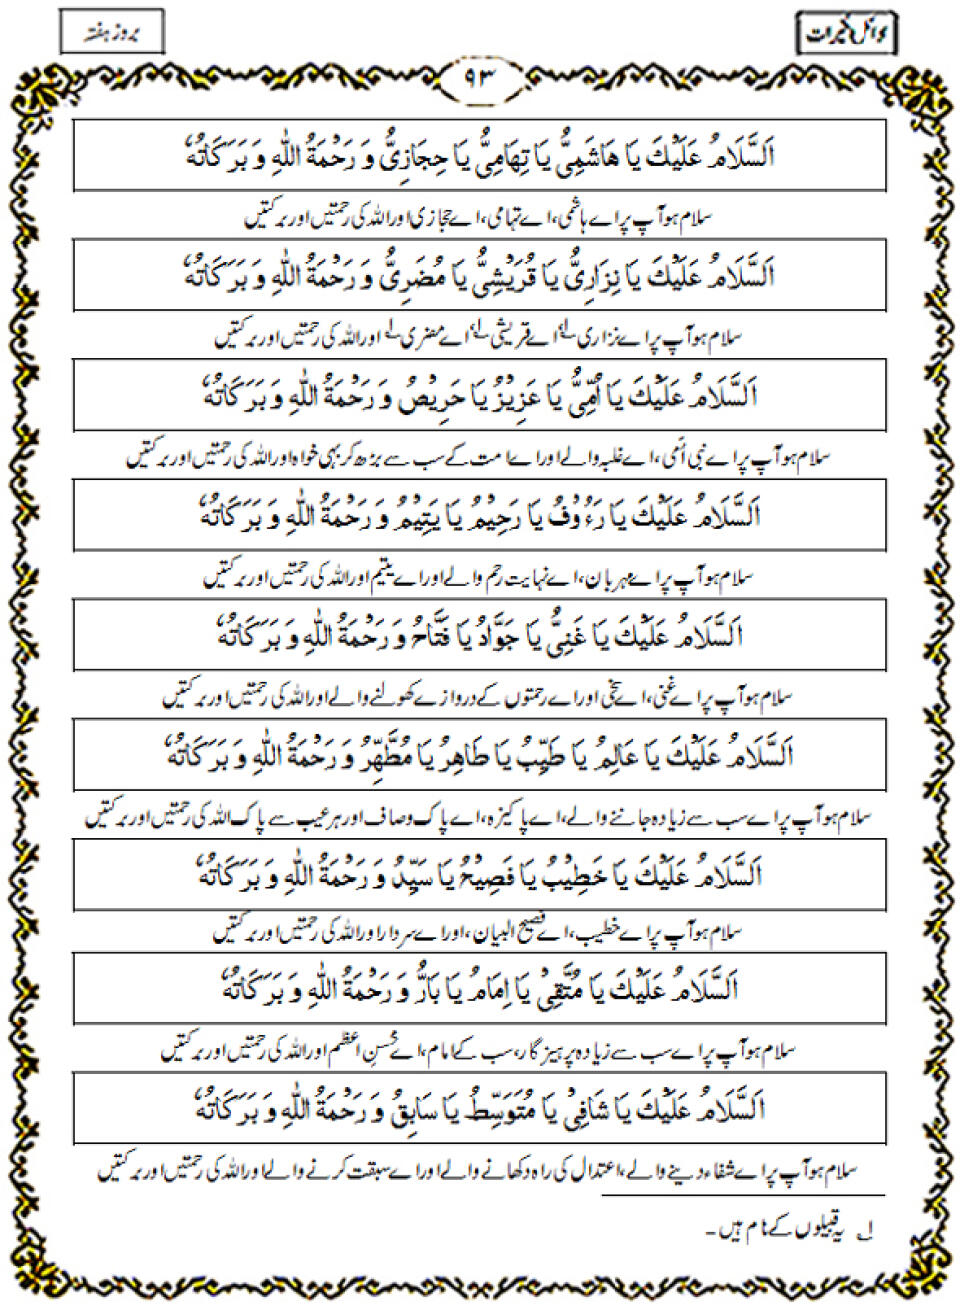 دلائل الخیرات
بروز ہفتہ
۹۳
اَلسَّلَامُ عَلَیْكَ یَا هَاشَمِیُّ یَا تِهَامِیُّ یَا حِجَازِیُّ وَ رَحْمَةُ اللّٰهِ وَ بَرَكَاتُهٗ
سلام ہو آپ پر اے ہاشمی، اے تہامی، اے حجازی اور اللہ کی رحمتیں اور برکتیں
اَلسَّلَامُ عَلَیْكَ یَا نِزَارِیُّ یَا قُرَیْشِیُّ یَا مُضَرِیُّ وَ رَحْمَةُ اللّٰهِ وَ بَرَكَاتُهٗ
سلام ہو آپ پر اے نزاری لے، اے قریشی لے، اے مضری لے اور اللہ کی رحمتیں اور برکتیں
اَلسَّلَامُ عَلَیْكَ یَا اُمِّیُّ یَا عَزِیْزُ یَا حَرِیْصُ وَ رَحْمَةُ اللّٰهِ وَ بَرَكَاتُهٗ
سلام ہو آپ پر اے نبی اُمی، اے غلبہ والے اور اے امت کے سب سے بڑھ کر بہی خواہ اور اللہ کی رحمتیں اور برکتیں
اَلسَّلَامُ عَلَیْكَ یَا رَءُوْفُ یَا رَحِیْمُ یَا یَتِیْمُ وَ رَحْمَةُ اللّٰهِ وَ بَرَكَاتُهٗ
سلام ہو آپ پر اے مہربان، اے نہایت رحم والے اور اے یتیم اور اللہ کی رحمتیں اور برکتیں
اَلسَّلَامُ عَلَیْكَ یَا غَنِیُّ یَا جَوَّادُ یَا فَتَّاحُ وَ رَحْمَةُ اللّٰهِ وَ بَرَكَاتُهٗ
سلام ہو آپ پر اے غنی، اے سخی اور اے رحمتوں کے دروازے کھولنے والے اور اللہ کی رحمتیں اور برکتیں
اَلسَّلَامُ عَلَیْكَ یَا عَالِمُ یَا طَیِّبُ یَا طَاهِرُ یَا مُطَهِّرُ وَ رَحْمَةُ اللّٰهِ وَ بَرَكَاتُهٗ
سلام ہو آپ پر اے سب سے زیادہ جاننے والے، اے پاکیزہ، اے پاک وصاف اور ہر عیب سے پاک اللہ کی رحمتیں اور برکتیں
اَلسَّلَامُ عَلَیْكَ یَا خَطِیْبُ یَا فَصِیْحُ یَا سَیِّدُ وَ رَحْمَةُ اللّٰهِ وَ بَرَكَاتُهٗ
سلام ہو آپ پر اے خطیب، اے فصیح البیان، اور اے سردار اور اللہ کی رحمتیں اور برکتیں
اَلسَّلَامُ عَلَیْكَ یَا مُتَّقِیْ یَا اِمَامُ یَا بَارُّ وَ رَحْمَةُ اللّٰهِ وَ بَرَكَاتُهٗ
سلام ہو آپ پر اے سب سے زیادہ پرہیزگار، سب کے امام، اے محسنِ اعظم اور اللہ کی رحمتیں اور برکتیں
اَلسَّلَامُ عَلَیْكَ یَا شَافِیْ یَا مُتَوَسِّطُ یَا سَابِقُ وَ رَحْمَةُ اللّٰهِ وَ بَرَكَاتُهٗ
سلام ہو آپ پر اے شفاء دینے والے، اعتدال کی راہ دکھانے والے اور اے سبقت کرنے والے اور اللہ کی رحمتیں اور برکتیں
لے یہ قبیلوں کے نام ہیں۔